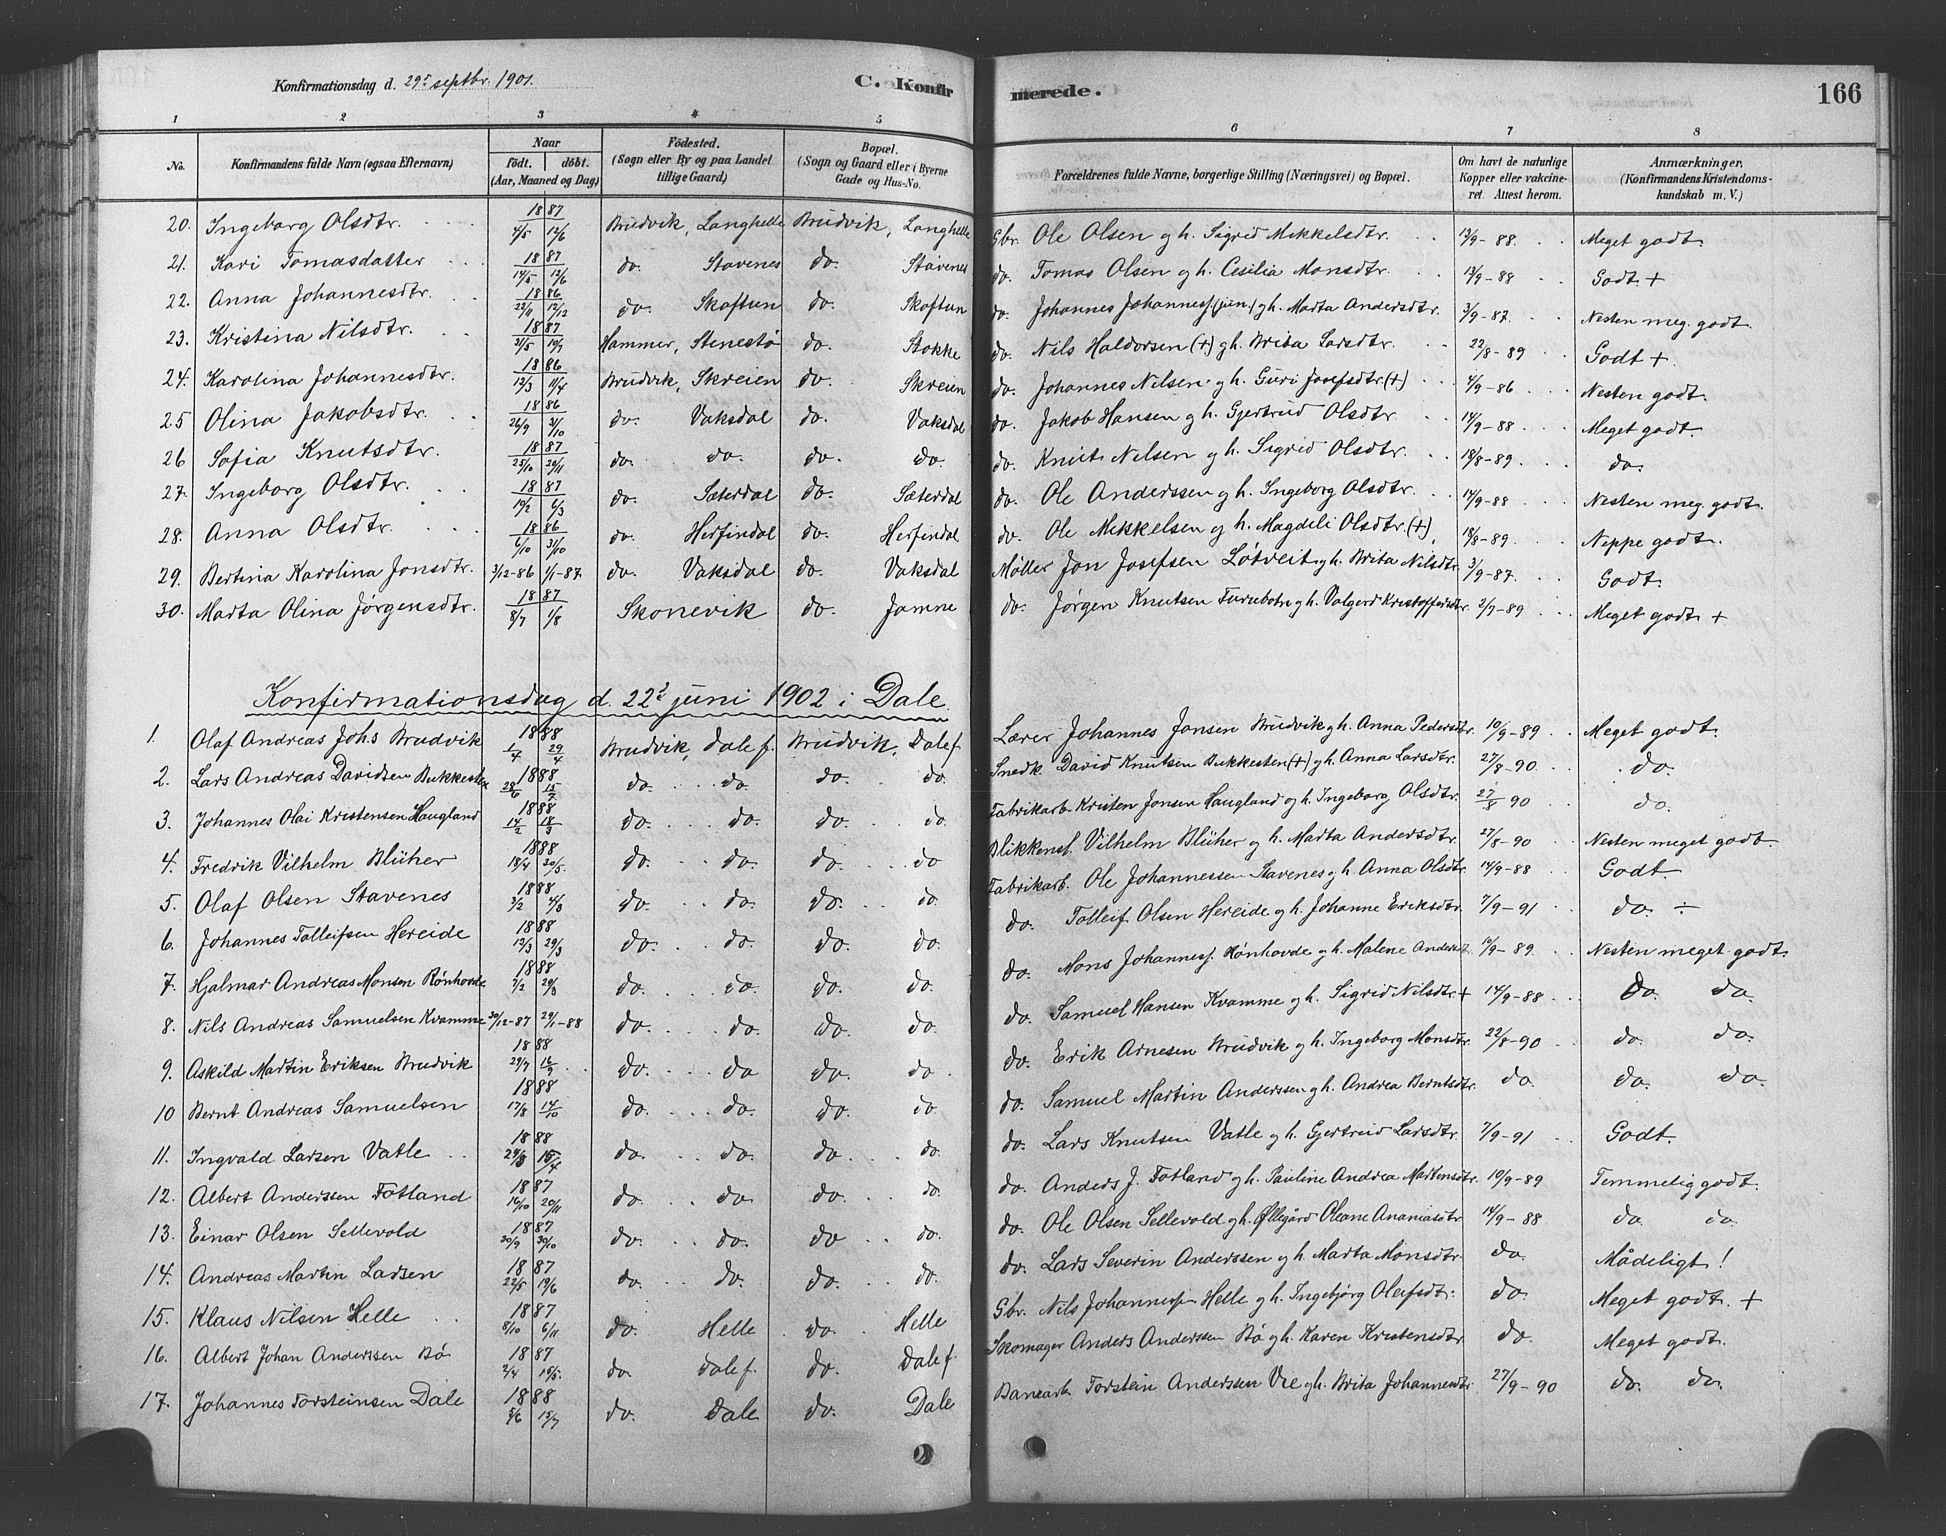 Konfirmationsdag d. 29de septbr. 1901.
C. Konfir merede. 166
1 2 3 4 5 6 7 8
No. Konfirmandens fulde Navn (ogsaa Efternavn) Naar født. døbt. (Aar, Maaned og Dag) Fødested. (Sogn eller By og paa Landet tillige Gaard) Bopæl. (Sogn og Gaard eller i Byerne Gade og Hus-No. Forældrenes fulde Navne, borgerlige Stilling (Næringsvei) og Bopæl. Om havt de naturlige Kopper eller vakcineret. Attest herom. Anmærkninger, (Konfirmandens Kristendomskundskab m. V.)
20. Ingeborg Olsdtr. 1887 4/5 12/6 Brudvik, Langhelle Brudvik, Langhelle Gbr. Ole Olsen og h. Sigrid Mikkelsdtr. 13/9-88. Meget godt.
21. Kari Tomasdatter 1887 14/5 12/6 do. Stavenes do. Stavenes do. Tomas Olsen og h. Cesilia Monsdtr. 13/9-88 Godt +
22. Anna Johannesdtr. 1886 22/11 12/12 do. Skoftun do. Skoftun do. Johannes Johannesj. (jun.) og h. Marta Andersdtr. 3/9-87. Nesten meg. godt.
23. Kristina Nilsdtr. 1887 31/5 19/7 Hammer, Stenestø do. Stokke do. Nils Haldorsen (+) og h. Brita Larsdtr. 22/8-89 Godt +
24. Karolina Johannesdtr. 1886 13/3 11/4 Brudvik, Skreien do. Skreien do. Johannes Nilsen og h. Guri Josefsdtr. (+) 4/9-86 Nesten godt.
25 Olina Jakobsdtr. 1886 26/9 31/10 do. Vaksdal do. Vaksdal do. Jakob Hansen og h. Gjertrud Olsdtr. 14/9-88 Meget godt.
26 Sofia Knutsdtr. 1887 25/10 20/11 do. do. do. do. do. Knut Nilsen og h. Sigrid Olsdtr. 18/8-89. do.
27. Ingeborg Olsdtr. 1887 19/2 6/3 do. Sæterdal do. Sæterdal do. Ole Anderssen og h. Ingeborg Olsdtr. 14/9-88 Nesten meg. godt.
28. Anna Olsdtr. 1886 6/10 31/10 do. Herfindal do. Herfindal do. Ole Mikkelsen og h. Magdeli Olsdtr. (+), 18/8-89. Neppe godt.
29. Bertina Karolina Jonsdtr. 3/12-86 1/1-87. do. Vaksdal do. Vaksdal Møller Jon Josefsen Løtveit og h. Brita Nilsdtr. 3/9-87. Godt.
30. Marta Olina Jørgensdtr. 1887 8/7 1/8 Skonevik do. Jamne do. Jørgen Knutsen Furubotn og h. Valgerd Kristoffersdtr. 2/9-89 Meget godt +
Konfirmationsdag d. 22de juni 1902 i Dale.
1. Olaf Andreas Johs Brudvik 1888 1/4 29/4 Brudvik, Dale f. Brudvik, Dale f. Lærer Johannes Jonsen Brudvik og h. Anna Pedersdtr. 10/9-89 Meget godt.
2. Lars Andreas Davidsen Bukkesten 1888 28/6 15/7 do. do. do. do. Snedk. David Knutsen Bukkesten (+) og h. Anna Larsdtr. 27/8-90. do.
3. Johannes Olai Kristensen Haugland 1888 14/2 18/3 do. do. do. do. Fabrikarb. Kristen Jonsen Haugland og h. Ingeborg Olsdtr. 27/8 90 do.
4. Fredrik Vilhelm Blüher 1888 18/4 20/5. do. do. do. do Blikkensl. Vilhelm Blüher og h. Marta Andersdtr. 27/8-90 Nesten meget godt.
5. Olaf Olsen Stavenes 1888 3/2 4/3 do. do. do. do. Fabrikarb. Ole Johannessen Stavenes og h. Anna Olsdtr. 14/9-88 Godt.
6. Johannes Tolleifsen Hereide 1888 13/3 29/3 do. do. do. do. do. Tolleif Olsen Hereide og h. Johanne Eriksdtr. 7/9-91 do. ÷
7. Hjalmar Andreas Monsen Rønhovde 1888 7/2 29/3 do. do. do. do. do. Mons Johannesj. Rønhovde og h. Malene Andersdt. 10/9-89. Nesten meget godt.
8. Nils Andreas Samuelsen Kvamme 30/12-87 29/1-88 do. do. do. do. do. Samuel Hansen Kvamme og h. Sigrid Nilsdtr + 14/9-88 do. do.
9. Askild Martin Eriksen Brudvik 1888 29/7 16/9 do. do do. do. do. Erik Arnesen Brudvik og h. Ingeborg Monsdtr. 22/8-90 do. do.
10 Bernt Andreas Samuelsen 1888 17/8 14/10 do. do. do. do. do. Samuel Martin Anderssen og h. Andrea Berntsdtr. do. do. do.
11. Ingvald Larsen Vatle 1888 24/3 15/4 do. do. do. do. do. Lars Knutsen Vatle og h. Gjertrud Larsdtr. 7/9-91 Godt.
12. Albert Anderssen Fotland 1887 14/10 20/11 do. do. do. do. do. Anders J. Fotland og h. Pauline Andrea Martensdtr. 10/9-89 Temmelig godt.
13. Einar Olsen Sellevold 1887 30/9 30/10 do. do. do do. do. Ole Olsen Sellevold og h. Øllegård Oleane Ananiasdtr. 14/9-88 do do.
14. Andreas Martin Larsen 1887 22/5 19/6 do. do. do. do. do. Lars Severin Anderssen og h. Marta Monsdtr. do. Mådeligt!
15. Klaus Nilsen Helle 1887 8/10 6/11 do. Helle do. Helle Gbr. Nils Johannesj. Helle og h. Ingebjørg Oleifsdtr. do. Meget godt. +
16. Albert Johan Anderssen Bø 1887 2/4 19/5. do Dale f. do. Dale f. Skomager Anders Anderssen Bø og h. Karen Kristensdtr. do. Meget godt.
17. Johannes Torsteinsen Dale 1888 5/6 15/7 do. Dale do. Dale Banearb. Torstein Anderssen Vie og h. Brita Johannesdtr 27/9-90 do. do.